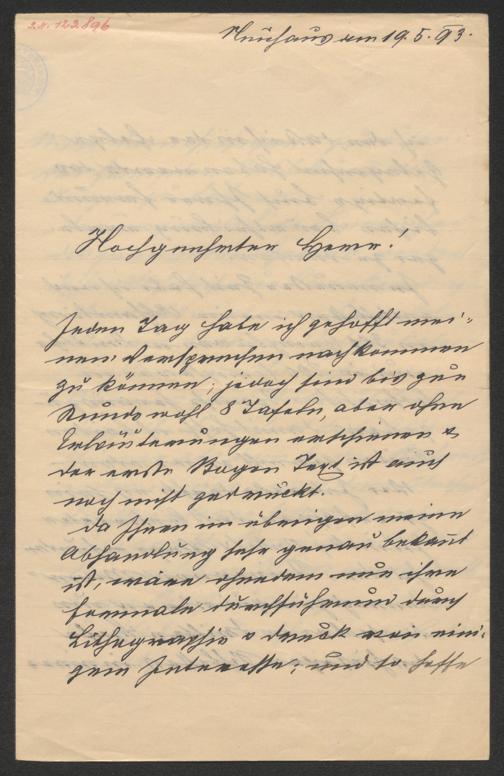 I.N. 122.896
Neuhaus am 19.5.93.
Hochgeehrter Herr!
Jeden Tag habe ich gehofft mei-
nem Versprechen nachkommen
zu können; jedoch sind bis zur
Stunde wohl 8 Tafeln, aber ohne
Erläuterungen erschienen &
der erste Bogen Text ist auch
noch nicht gedruckt.
Da Ihnen im übrigen meine
Abhandlung sehr genau bekannt
ist, wäre ohnedem nur ihre
formale Durchführung durch
Lithographie & Druck von eini-
gem Interesse; und so hoffe